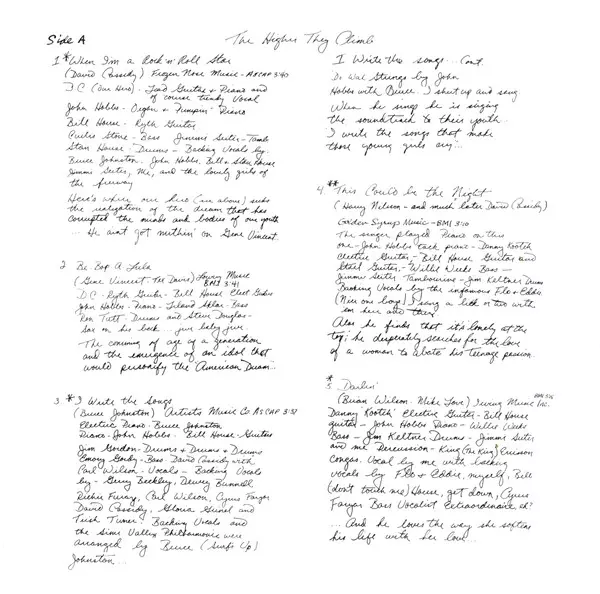 Side A
The Higher They Climb
1 * When I'm a Rock 'n' Roll Star
(David Cassidy) Frozen Nose Music - ASCAP 3:40
D C (Our Hero) - Lead Guitar & Piano and
of course trendy Vocal
John Hobbs - Organ & Piano
Bill House - Ryth Guitar
Curtis Stone - Bass Jimmie Seiter - Tamb
Stan House: Drums - Backing Vocals by:
Bruce Johnston. John Hobbs. Bill & Stan House
Jimmie Seiter, Me, and the lovely girls of
the freeway
Here's where our hero (see above) seeks
the realization of the dream that has
corrupted the minds and bodies of our youth
... He ain't got nuthin' on Gene Vincent.
2 Be Bop A Lula
(Gene Vincent. Tex Davis) Lowry Music
BMI 3:41
D.C - Ryth Guitar - Bill House Elect Guitar
John Hobbs - Piano - Leland Sklar - Bass
Ron Tutt Drums and Steve Douglas -
Sax on his back - jive baby jive
The coming of age of a generation
and the emergence of an idol that
would personify the American Dream...
3 * I Write the Songs
(Bruce Johnston) Artists Music Co ASCAP 3:37
Electric Piano: Bruce Johnston
Piano - John Hobbs - Bill House - Guitars
Jim Gordon - Drums & Drums & Drums
Emory Gordy - Bass David Cassidy with
Carl Wilson - Vocals - Backing Vocals
by - Gerry Beckley, Dewey Bunnell
Richie Furay, Carl Wilson, Cyrus Faryar
David Cassidy, Gloria Grinel and
Trish Turner: Backing Vocals and
the Simi Valley Philharmonic were
arranged by Bruce (Surf's Up)
Johnston...
I Write the songs... Cont.
Do Wah Strings by John
Hobbs with Bruce I shut up and sang
When he sings he is singing
the soundtrack to their youth.
I write the songs that make
those young girls cry...
4 ** This Could be the Night
(Harry Nilsson - and much later David Cassidy)
Golden Syrup Music - BMI 3:10
The singer played Piano on this
one - John Hobbs tack piano - Danny Kootch
Electric Guitar - Bill House Guitar and
Steel Guitar - Willie Weeks Bass -
Jimmie Seiter Tambourine - Jim Keltner Drums
Backing Vocals by the infamous Flo & Eddie
(Nice one boys) I sang a lick or two with
em here and there
Alas he finds that it's lonely at the
top; he desperately searches for the love
of a woman to abate his teenage passion.
* 5 Darlin'
(Brian Wilson. Mike Love) Irving Music Inc. BMI
Danny Kootch Electric Guitar - Bill House
guitar - John Hobbs Piano - Willie Weeks
Bass - Jim Keltner Drums - Jimmie Seiter
and me Percussion - King Errisson
Congas. Vocal by me with backing
vocals by Flo & Eddie, myself, Bill
(don't touch me) House, get down, Cyrus
Faryar Bass Vocalist Extraordinaire eh?
... And he loves the way she softens
his life with her love...